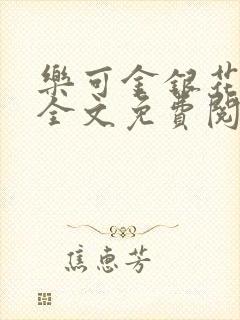 樂可金銀花
全文免費閱
焦惠芳